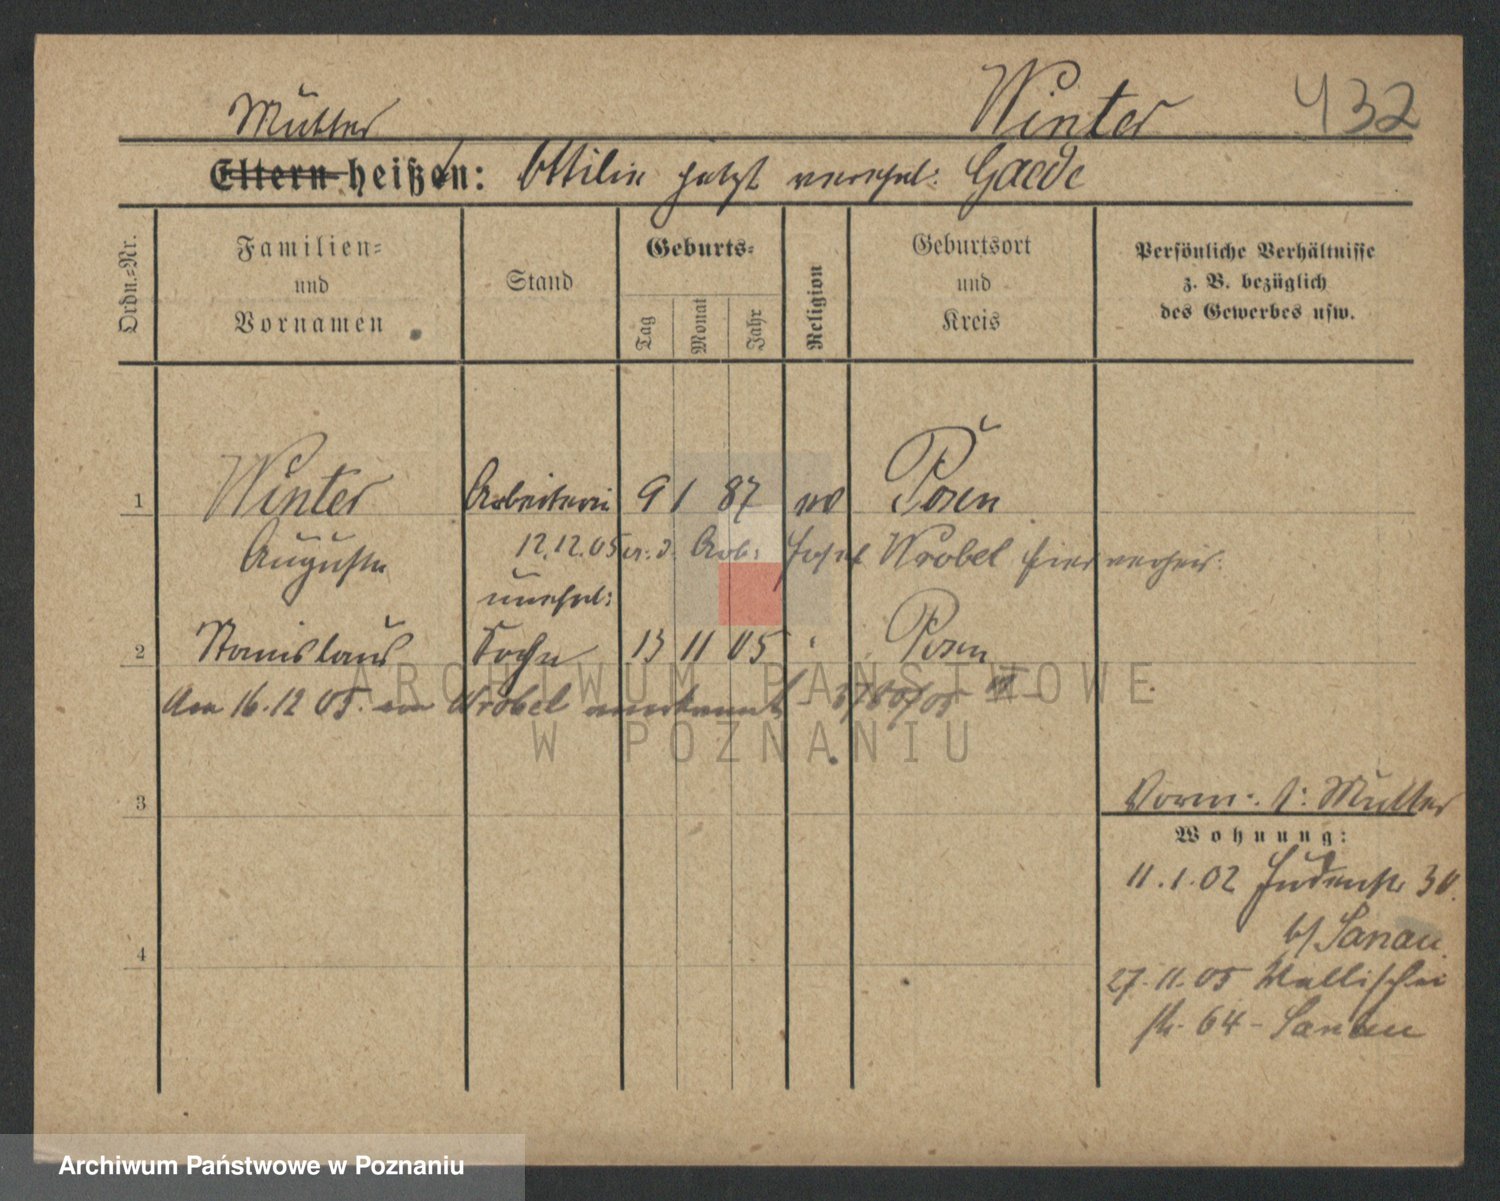 Winter 432
Mutter
Eltern heißen: Ottilie jetzt verehel: Gaede
Ordn.=Nr.
Familien=
und
Vornamen
Stand
Geburts=
Tag
Monat
Jahr
Religion
Geburtsort
und
Kreis
Persönliche Verhältnisse
z. B. bezüglich
des Gewerbes usw.
1 Winter Arbeiterin 9 1 87 Posen
Auguste 12.12.05 Arb: Josef Wrobel hier verheir:
unehel:
2 Stanislaus Sohn 13 11 05 Posen
Am 16.12 05. Wrobel anerkannt
3
Vorm: Mutter
Wohnung:
11.1.02 Judenstr 30.
4
27.11.05 Wallischei
str. 64 -
ARCHIWUM PAŃSTWOWE
W POZNANIU
Archiwum Państwowe w Poznaniu